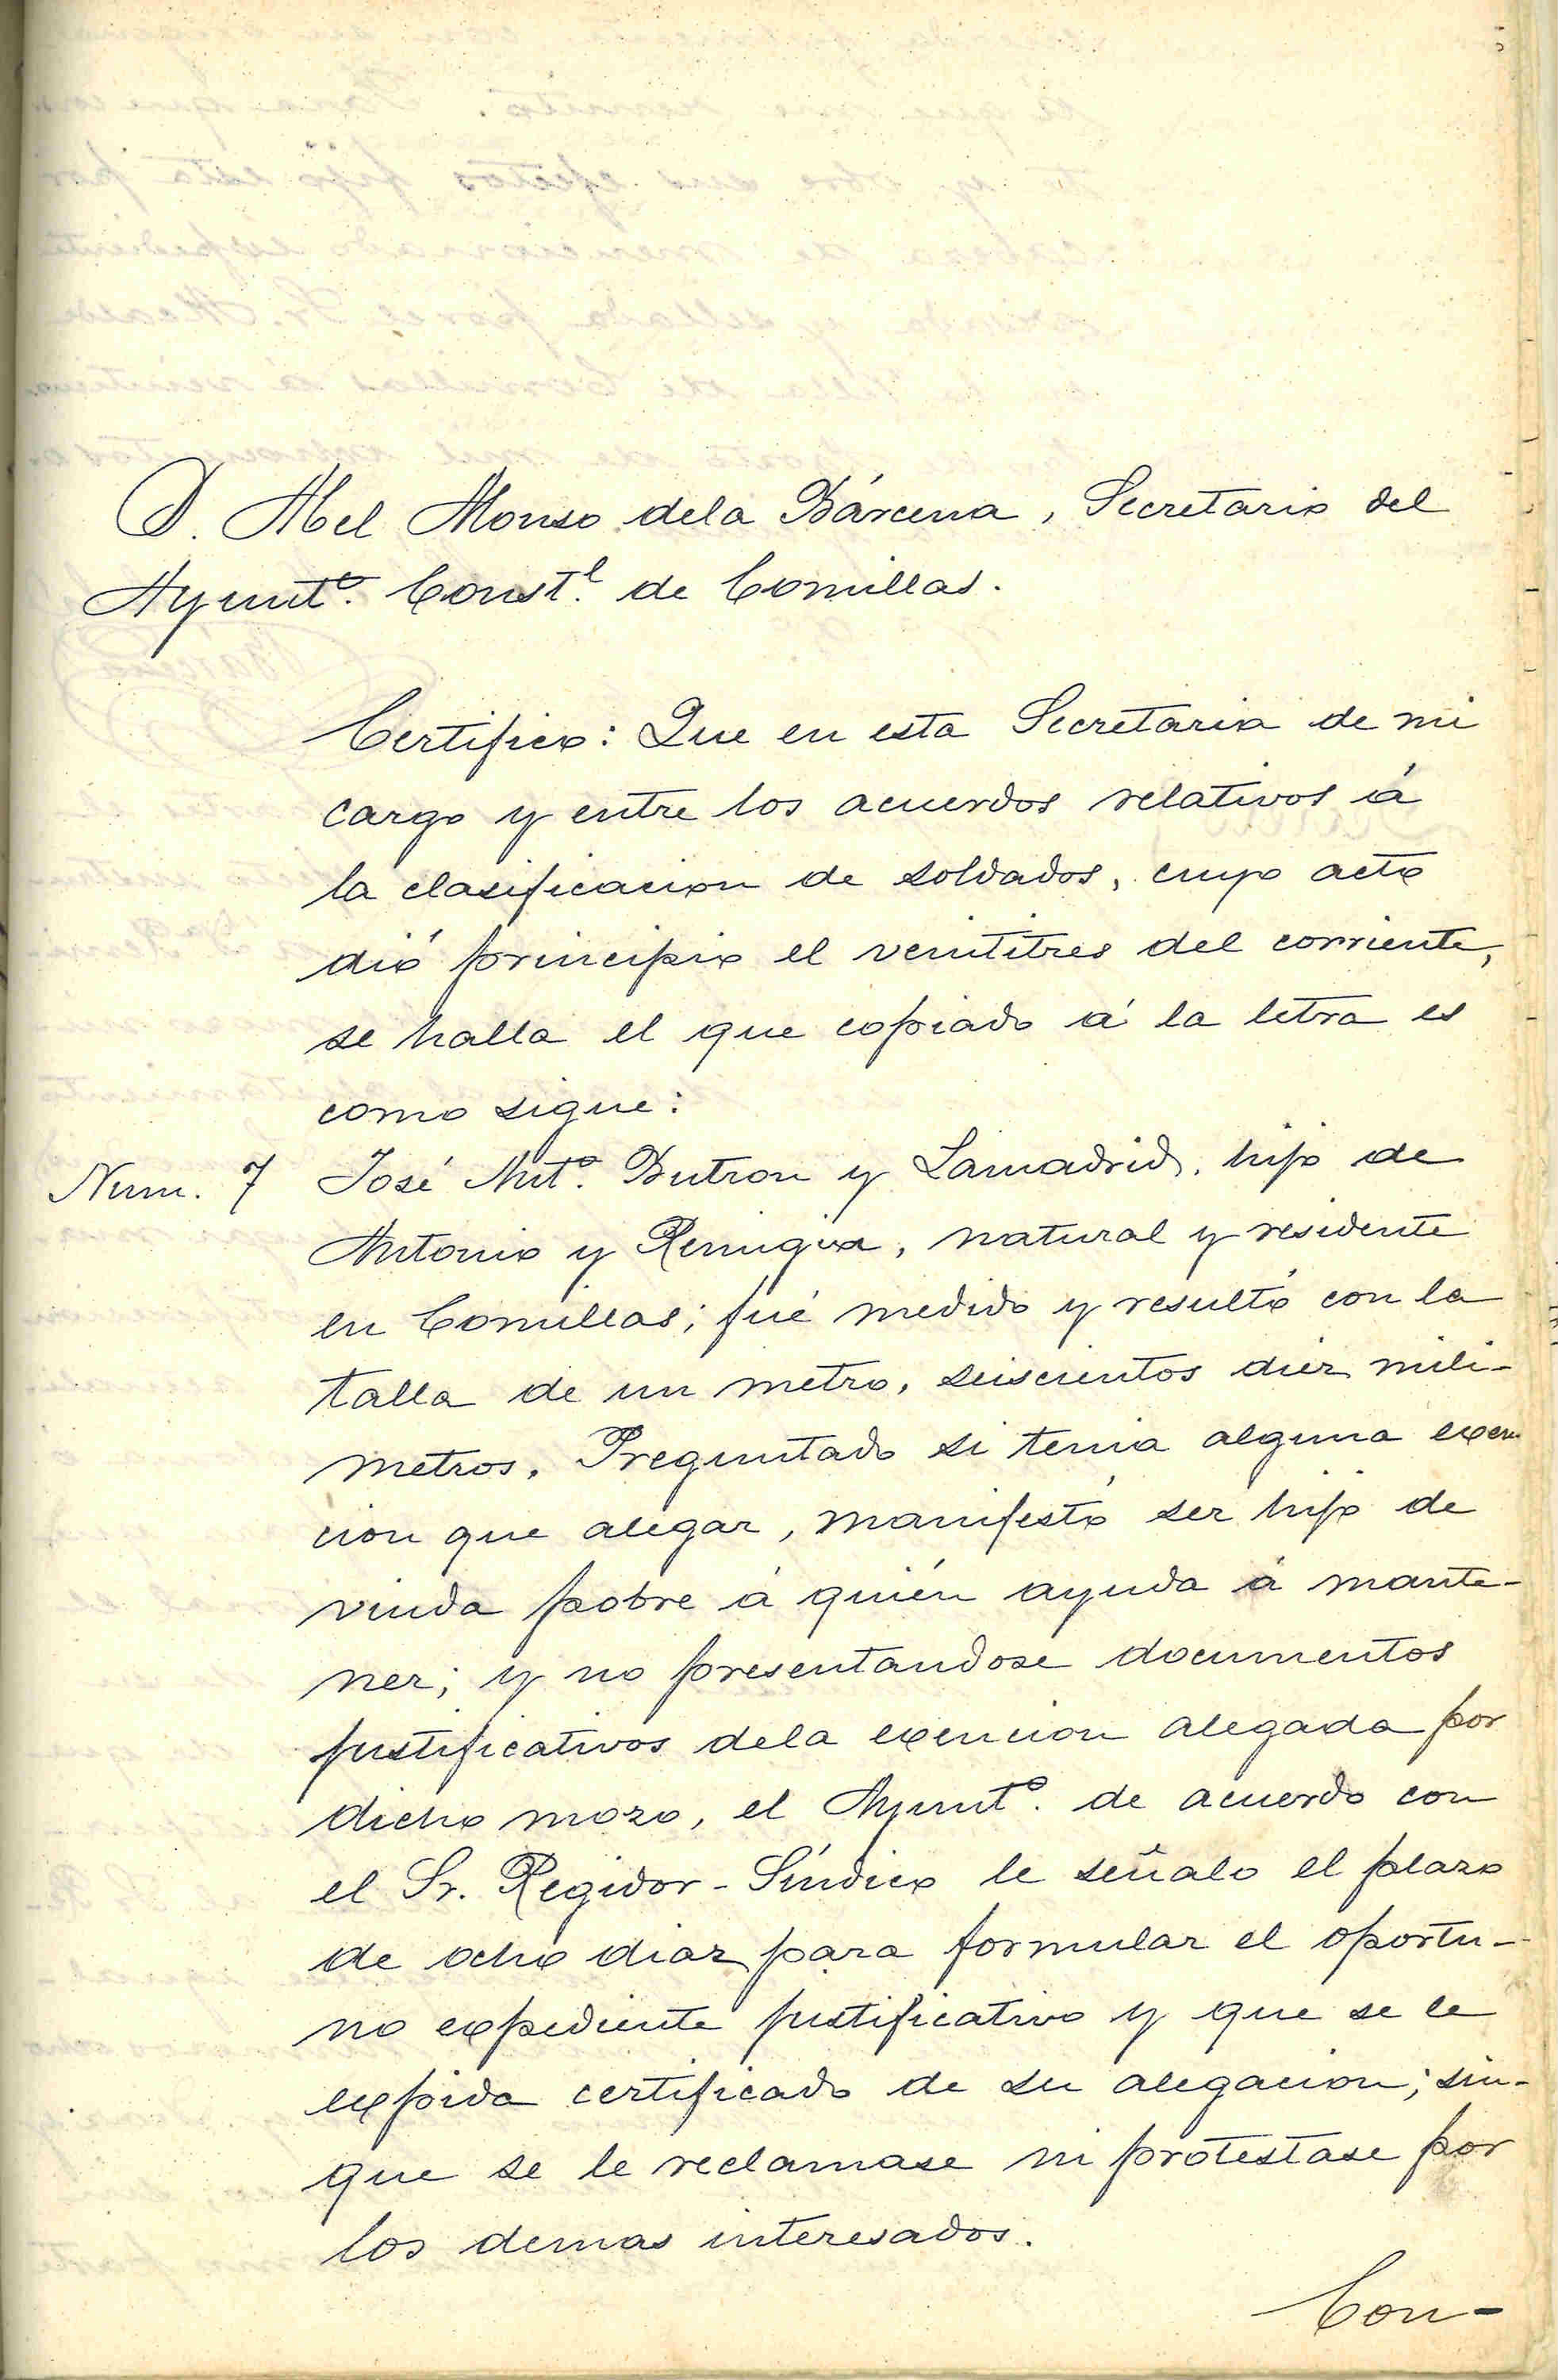 D. Abel Alonso dela Bárcena, Secretario del
Ayuntº. Constl. de Comillas.
Certifico: Que en esta Secretaria de mi
cargo y entre los acuerdos relativos á
la clasificacion de soldados, cuyo acto
dió principio el veintitres del corriente,
se halla el que copiado á la letra es
como sigue:
Num. 7 José Antº. Butron y Lamadrid, hijo de
Antonio y Remigia, natural y residente
en Comillas; fué medido y resultó con la
talla de un metro, seiscientos diez mili-
metros. Preguntado si tenia alguna exen
cion que alegar, manifestó ser hijo de
viuda pobre á quién ayuda á mante-
ner; y no presentandose documentos
justificativos dela exencion alegada por
dicho mozo, el Ayuntº. de acuerdo con
el Sr. Regidor-Síndico le señalo el plazo
de ocho diaz para formular el oportu-
no expediente justificativo y que se le
expida certificado de su alegacion; sin-
que se le reclamase ni protestase por
los demas interesados.
Con-